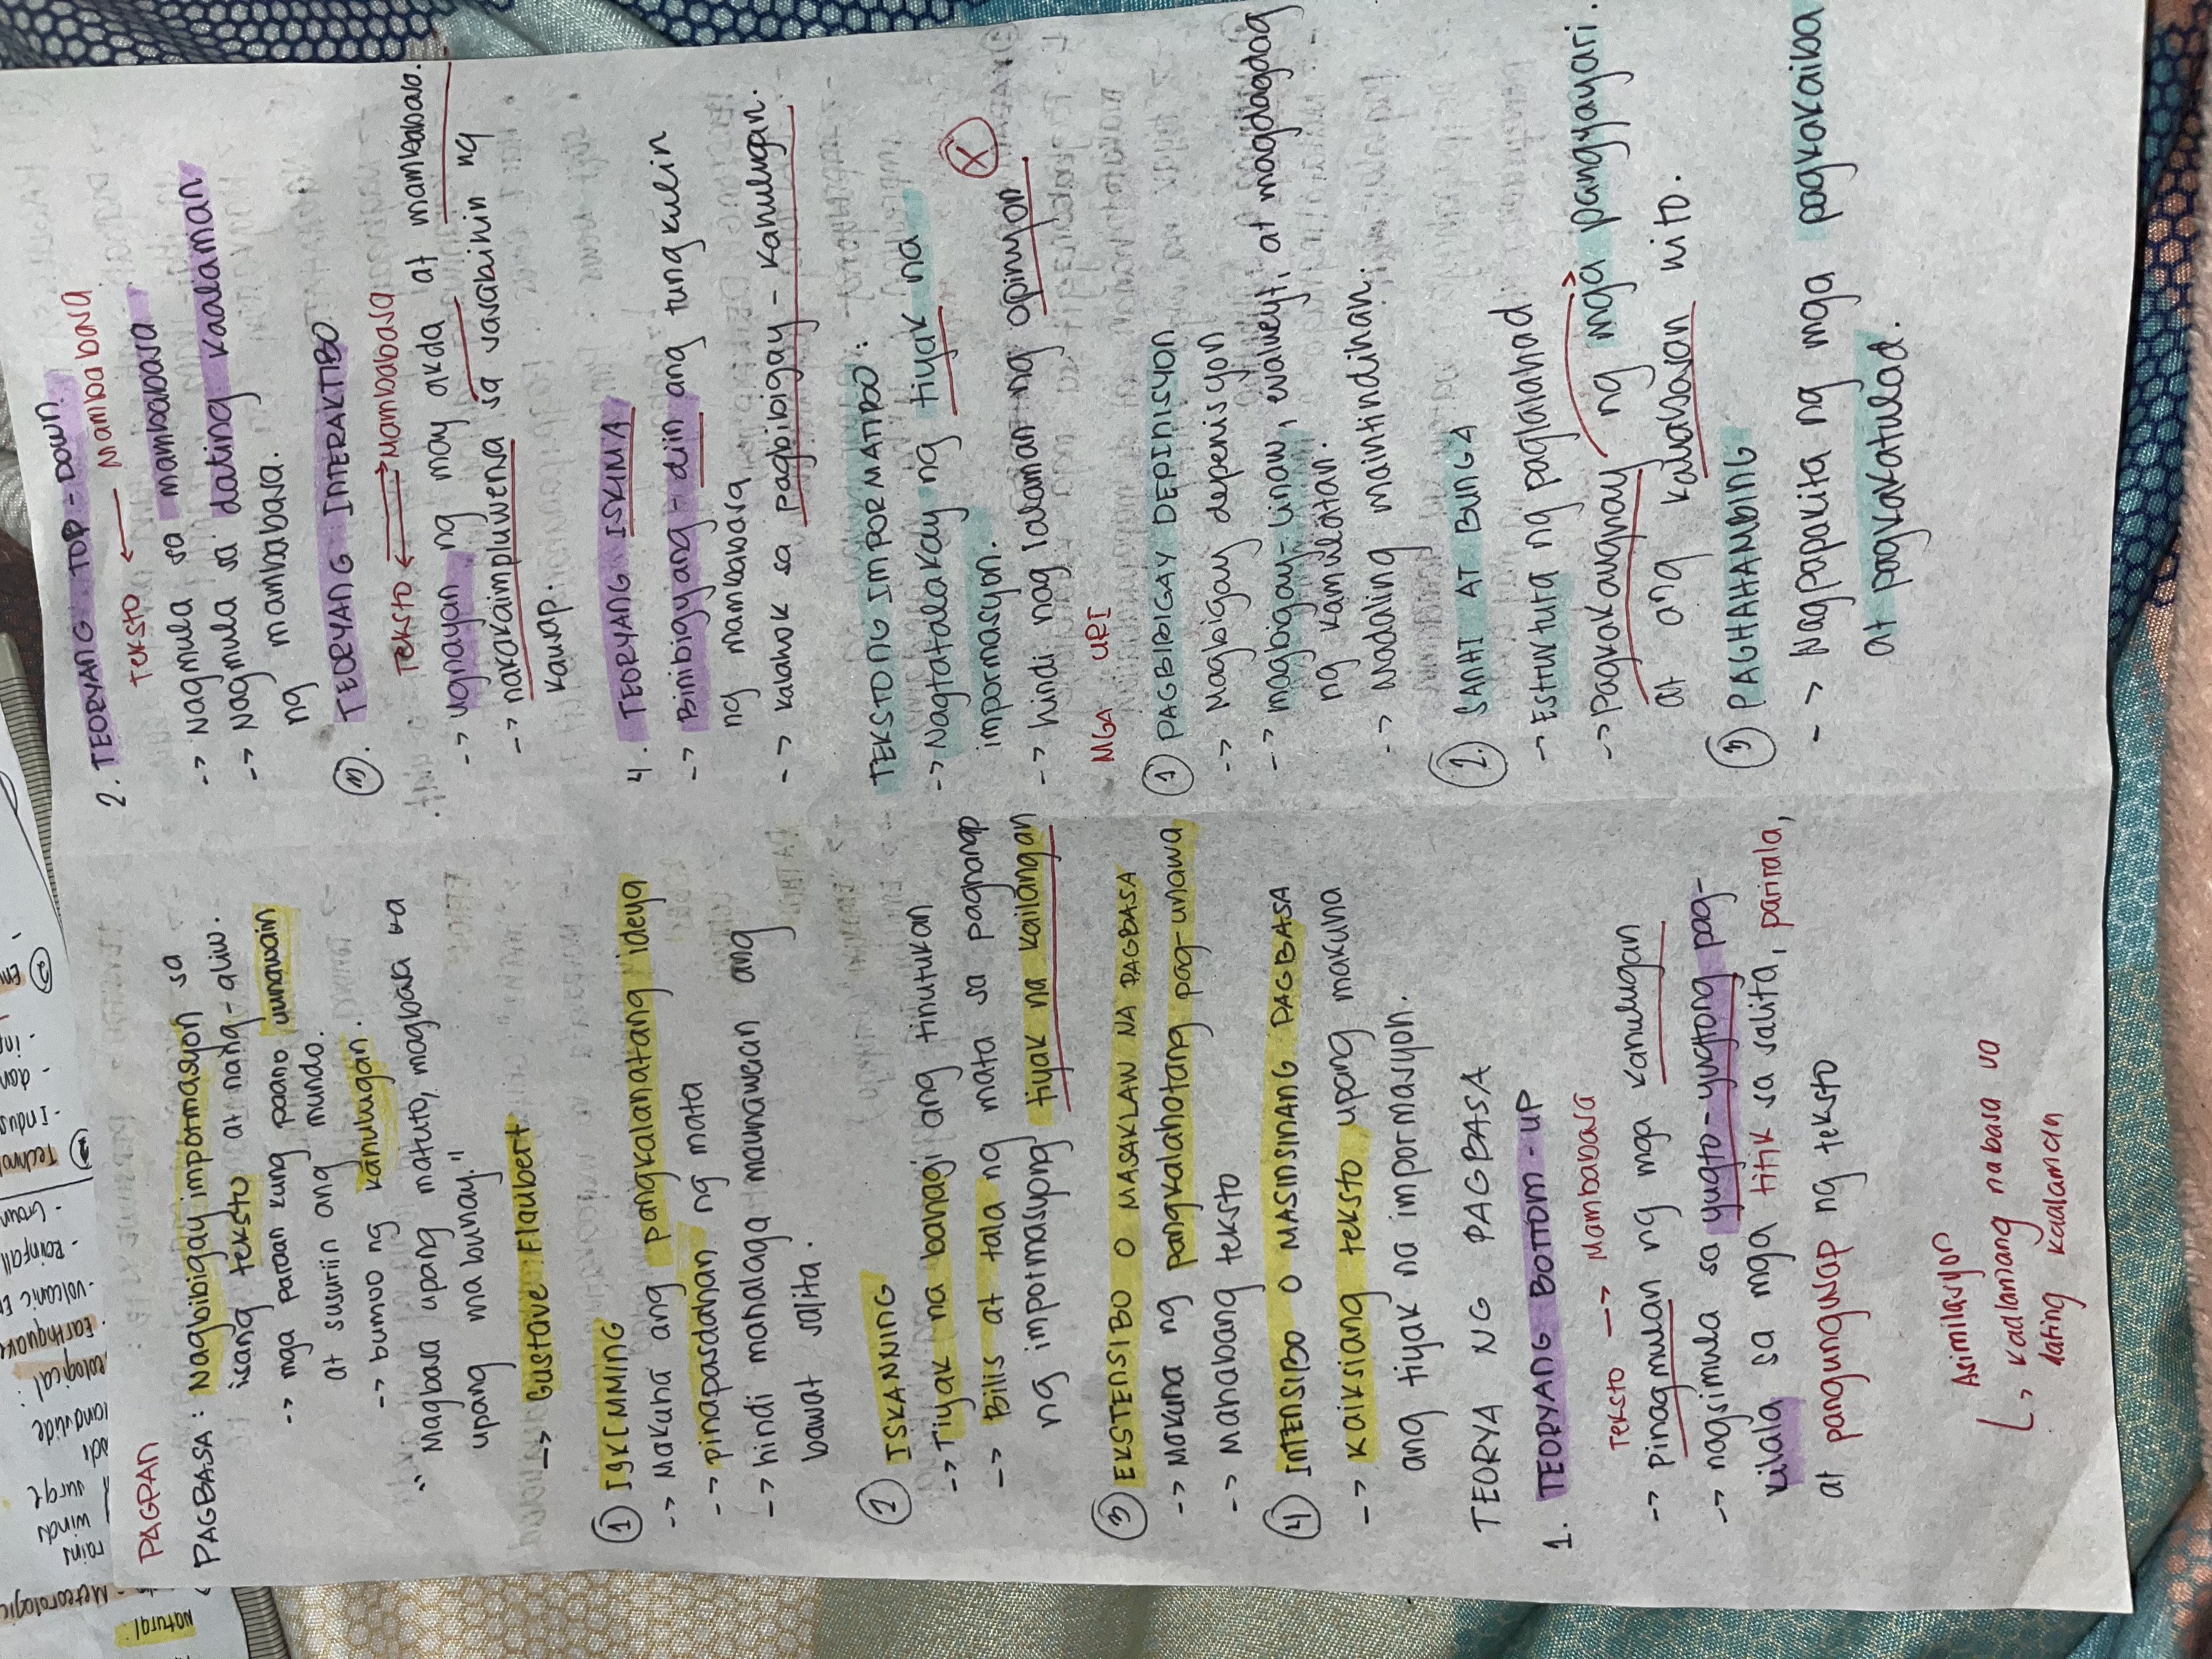 Natural
- Meteorologic
rains
winds
surge
landslide
- Earthquake
- volcanic
- Rainfall
① Technol
- Indus
②
PAGPAN
PAGBASA: Nagbibigay impormasyon sa
isang teksto at nang-aliw.
-> mga paraan kung paano uunawain
at susuriin ang mundo.
-> bumuo ng kahulugan.
"Magbasa upang matuto, magbasa ka
upang mabuhay."
-> Gustave Flaubert
① ISKIMMING
-> Makuha ang pangkalahatang ideya
-> pinapasdahan ng mata
-> hindi mahalaga maunawaan ang
bawat salita.
② ISKANNING
-> Tiyak na bahagi ang tinutukan
-> Bilis at tala ng mata sa paghanap
ng impormasyong tiyak na kailangan
③ EKSTENSIBO O MASAKLAW NA PAGBASA
-> Makuha ng pangkalahatang pag-unawa
-> Mahabang teksto
④ INTENSIBO O MASINSINANG PAGBASA
-> kaiksiang teksto upang makuha
ang tiyak na impormasyon.
TEORYA NG PAGBASA
1. TEORYANG BOTTOM-UP
Teksto -> Mambabasa
-> pinagmulan ng mga kahulugan
-> nagsimula sa yugto-yugtong pag-
kilala sa mga titik sa salita, parirala,
at pangungusap ng teksto
Asimilasyon
↳ kaalamang nabasa sa
dating kaalaman
2. TEORYANG TOP-DOWN
Teksto <- Mambabasa
-> Nagmula sa mambabasa
-> Nagmula sa dating kaalaman
ng mambabasa.
③. TEORYANG INTERAKTIBO
Teksto ⇄ Mambabasa
-> ugnayan ng may akda at mambabasa.
-> nakakaimpluwensa sa sasabihin ng
kausap.
4. TEORYANG ISKIMA
-> Binibigyang-diin ang tungkulin
ng mambabasa
-> kalahok sa pagbibigay-kahulugan.
TEKSTONG IMPORMATIBO:
-> Nagtatalakay ng tiyak na
impormasyon.
-> hindi naglalaman ng opinyon X
MGA URI
① PAGBIBIGAY DEPINISYON
-> Magbigay depenisyon
-> magbigay-linaw, evalueyt, at magdagdag
ng kamulatan.
-> Madaling maintindihan.
②. SANHI AT BUNGA
-> Estruktura ng paglalahad
-> Pagkakaugnay ng mga pangyayari.
at ang kalabasan nito.
③ PAGHAHAMBING
-> Nagpapakita ng mga pagkakaiba
at pagkakatulad.